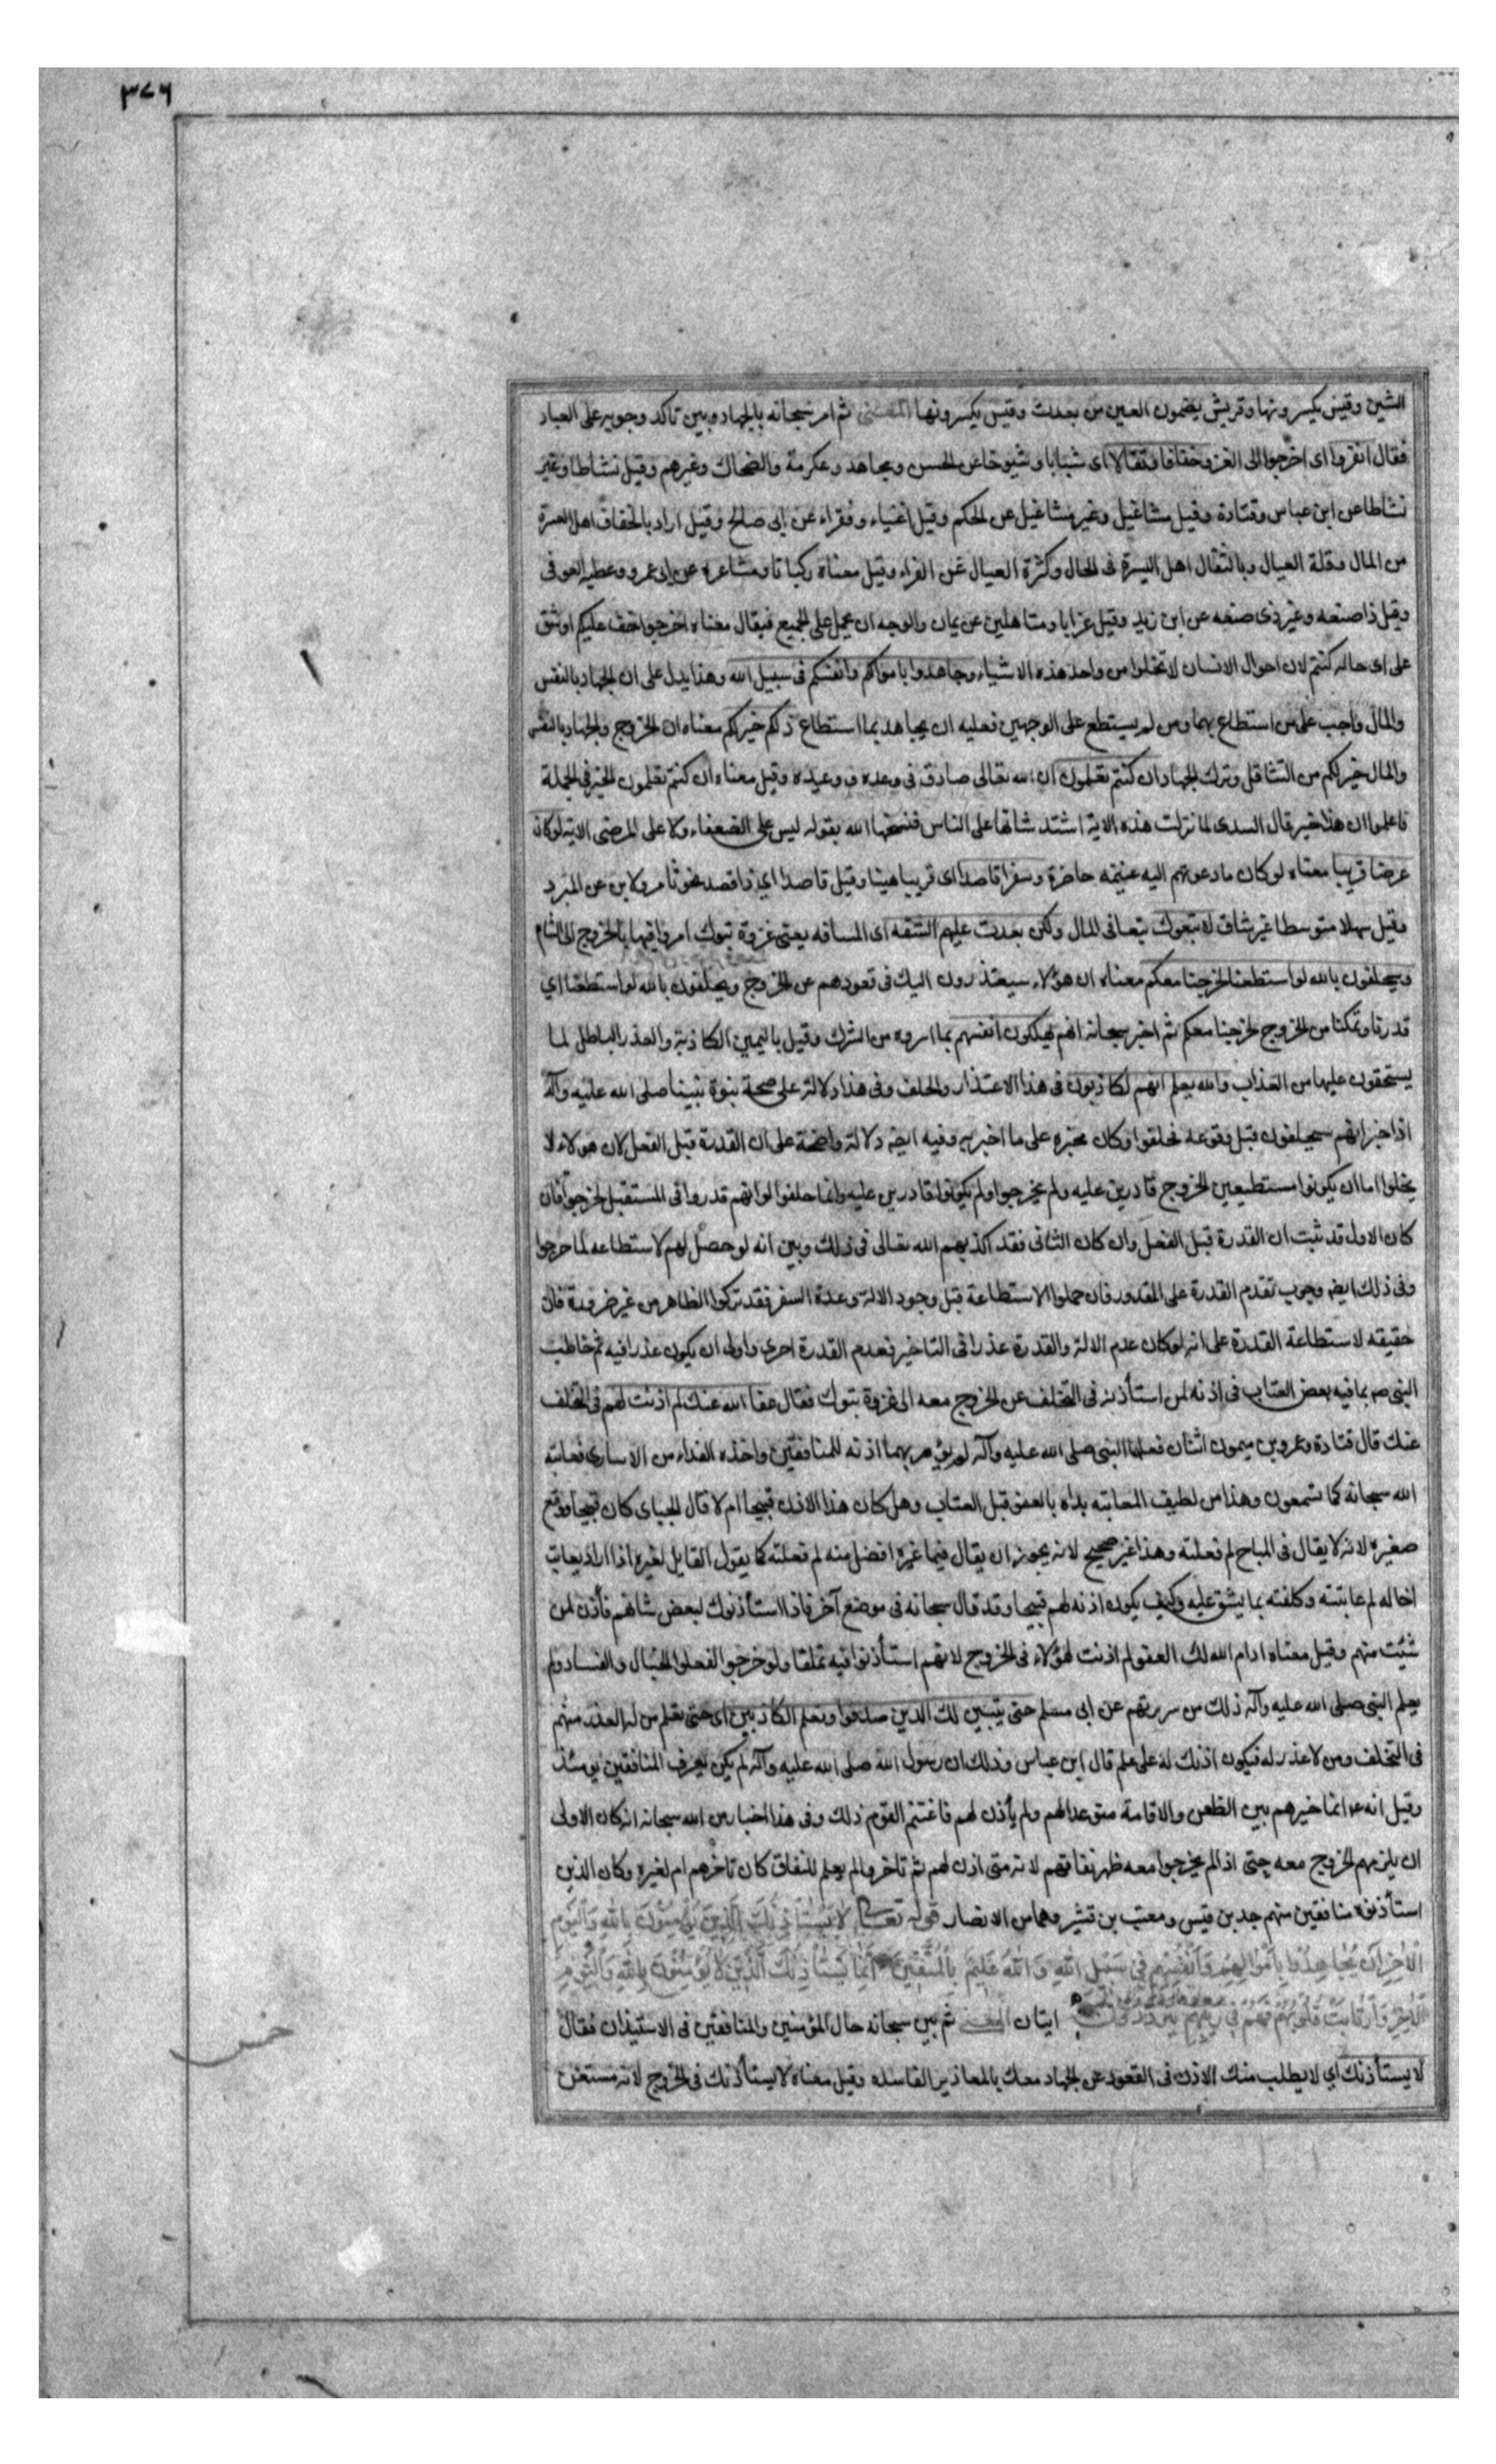 ٣٧٦
الشين وقيس يكسرونها وقريش يضمون العين من بعدت وقيس يكسرونها المعنى ثم امر سبحانه بالجهاد وبين تاكد وجوبه على العباد
فقال انفروا اى اخرجوا الى الغزو خفافا وثقالا اى شبابا وشيوخا عن الحسن ومجاهد وعكرمة والضحاك وغيرهم وقيل نشاطا وغير
نشاطا عن ابن عباس وقتادة وقيل مشاغيل وغير مشاغيل عن الحكم وقيل اغنياء وفقراء عن ابى صالح وقيل اراد بالخفاف اهل العسرة
من المال وقلة العيال وبالثقال اهل اليسرة فى الحال وكثرة العيال عن الفراء وقيل معناه ركبانا ومشاة عن ابى عمرو وعطيه العوفى
وقيل ذا صنعه وغير ذى صنعه عن ابن زيد وقيل عزابا ومتاهلين عن يمان والوجه ان يحمل على الجميع فيقال معناه اخرجوا خف عليكم او شق
على اى حاله كنتم لان احوال الانسان لا تخلوا من واحد هذه الاشياء وجاهدوا باموالكم وانفسكم فى سبيل الله وهذا يدل على ان الجهاد بالنفس
والمال واجب على من استطاع بهما ومن لم يستطع على الوجهين فعليه ان يجاهد بما استطاع ذلكم خير لكم معناه ان الخروج والجهاد بالنفس
والمال خير لكم من التثاقل وترك الجهاد ان كنتم تعلمون ان الله تعالى صادق فى وعده ووعيده وقيل معناه ان كنتم تعلمون الخير فى الجملة
فاعلموا ان هذا خير قال السدى لما نزلت هذه الاية اشتد شانها على الناس فنسخها الله بقوله ليس على الضعفاء ولا على المرضى الاية لو كان
عرضا قريبا معناه لو كان ما دعوتهم اليه غنيمه حاضرة وسفرا قاصدا اى قريبا هينا وقيل قاصدا اى ذا قصد نحو تامر ولابن عن المبرد
وقيل سهلا متوسطا غير شاق لاتبعوك تبعا فى المال ولكن بعدت عليهم الشقه اى المسافه يعنى غزوة تبوك امروا فيها بالخروج الى الشام
وسيحلفون بالله لو استطعنا لخرجنا معكم معناه ان هؤلاء سيعتذرون اليك فى قعودهم عن الخروج ويحلفون بالله لو استطعنا اي
قدرنا وتمكنا من الخروج لخرجنا معكم ثم اخبر سبحانه انهم يهلكون انفسهم بما اسروه من الشرك وقيل باليمين الكاذبة والعذر الباطل لما
يستحقون عليها من العذاب والله يعلم انهم لكاذبون فى هذا الاعتذار والحلف وفى هذا دلالة على صحة نبوة نبينا صلى الله عليه وآله
اذ اخبر انهم سيحلفون قبل وقوعه فحلفوا وكان مخبره على ما اخبر به وفيه ايضه دلالة واضحة على ان القدرة قبل الفعل لان هولاء لا
يخلوا اما ان يكونوا مستطيعين الخروج قادرين عليه ولم يخرجوا ولم يكونوا قادرين عليه وانما حلفوا لو انهم قدروا فى المستقبل لخرجوا فان
كان الاول قد ثبت ان القدرة قبل الفعل وان كان الثانى فقد اكذبهم الله تعالى فى ذلك وبين انه لو حصل لهم الاستطاعه لما خرجوا
وفى ذلك ايضه وجوب تقدم القدرة على المقدور فان حملوا الاستطاعة قبل وجود الالة وعدة السفر فقد تركوا الظاهر من غير ضرورة فان
حقيقه لاستطاعة القدرة على انه لو كان عدم الالة والقدرة عذرا فى التاخير فعدم القدرة احرى واولى ان يكون عذرا فيه ثم خاطب
النبى صم بما فيه بعض العتاب فى اذنه لمن استأذنه فى التخلف عن الخروج معه الى غزوة تبوك فقال عفا الله عنك لم اذنت لهم فى التخلف
عنك قال قتادة وعمرو بن ميمون اثنان فعلهما النبى صلى الله عليه وآله لم يؤمر بهما اذنه للمنافقين واخذه الفداء من الاسارى فعاتبه
الله سبحانه كما تسمعون وهذا من لطيف المعاتبه بداه بالعفو قبل العتاب وهل كان هذا الاذن قبيحا ام لا قال الجبائى كان قبيحا ووقع
صغيره لانه لا يقال فى المباح لم فعلته وهذا غير صحيح لانه يجوز ان يقال فيما غيره افضل منه لم فعلته كما يقول القايل لغيره اذا اراد يعاتب
اخا له لم عاتبته وكلفته بما يشق عليه وكيف يكون اذنه لهم قبيحا وقد قال سبحانه فى موضع آخر فاذا استأذنوك لبعض شانهم فأذن لمن
شئت منهم وقيل معناه ادام الله لك العفو لم اذنت لهؤلاء فى الخروج لانهم استأذنوا فيه تملقا ولو خرجوا لفعلوا الخبال والفساد ولم
يعلم النبى صلى الله عليه وآله ذلك من سريرتهم عن ابى مسلم حتى يتبين لك الذين صدقوا وتعلم الكاذبين اى حتى تعلم من له العذر منهم
فى التخلف ومن لا عذر له فيكون اذنك له على علم قال ابن عباس وذلك ان رسول الله صلى الله عليه وآله لم يكن يعرف المنافقين يومئذ
وقيل انه ع انما خيرهم بين الظعن والاقامة متوعدا لهم ولم يأذن لهم فاغتنم القوم ذلك وفى هذا اخبار من الله سبحانه انه كان الاولى
ان يلزمهم الخروج معه حتى اذا لم يخرجوا معه ظهر نفاقهم لانه متى اذن لهم ثم تاخروا لم يعلم للنفاق كان تاخرهم ام لغيره وكان الذين
استأذنوه منافقين منهم جد بن قيس ومعتب بن قشير وهما من الانصار قوله تعالى لا يستأذنك الذين يؤمنون بالله واليوم
الاخر ان يجاهدوا باموالهم وانفسهم فى سبيل الله والله عليم بالمتقين انما يستأذنك الذين لا يؤمنون بالله واليوم
الاخر وارتابت قلوبهم فهم فى ريبهم يترددون ايتان المعنى ثم بين سبحانه حال المؤمنين والمنافقين فى الاستيذان فقال
لا يستأذنك اي لا يطلب منك الاذن فى القعود عن الجهاد معك بالمعاذير الفاسده وقيل معناه لا يستأذنك فى الخروج لانه مستغن